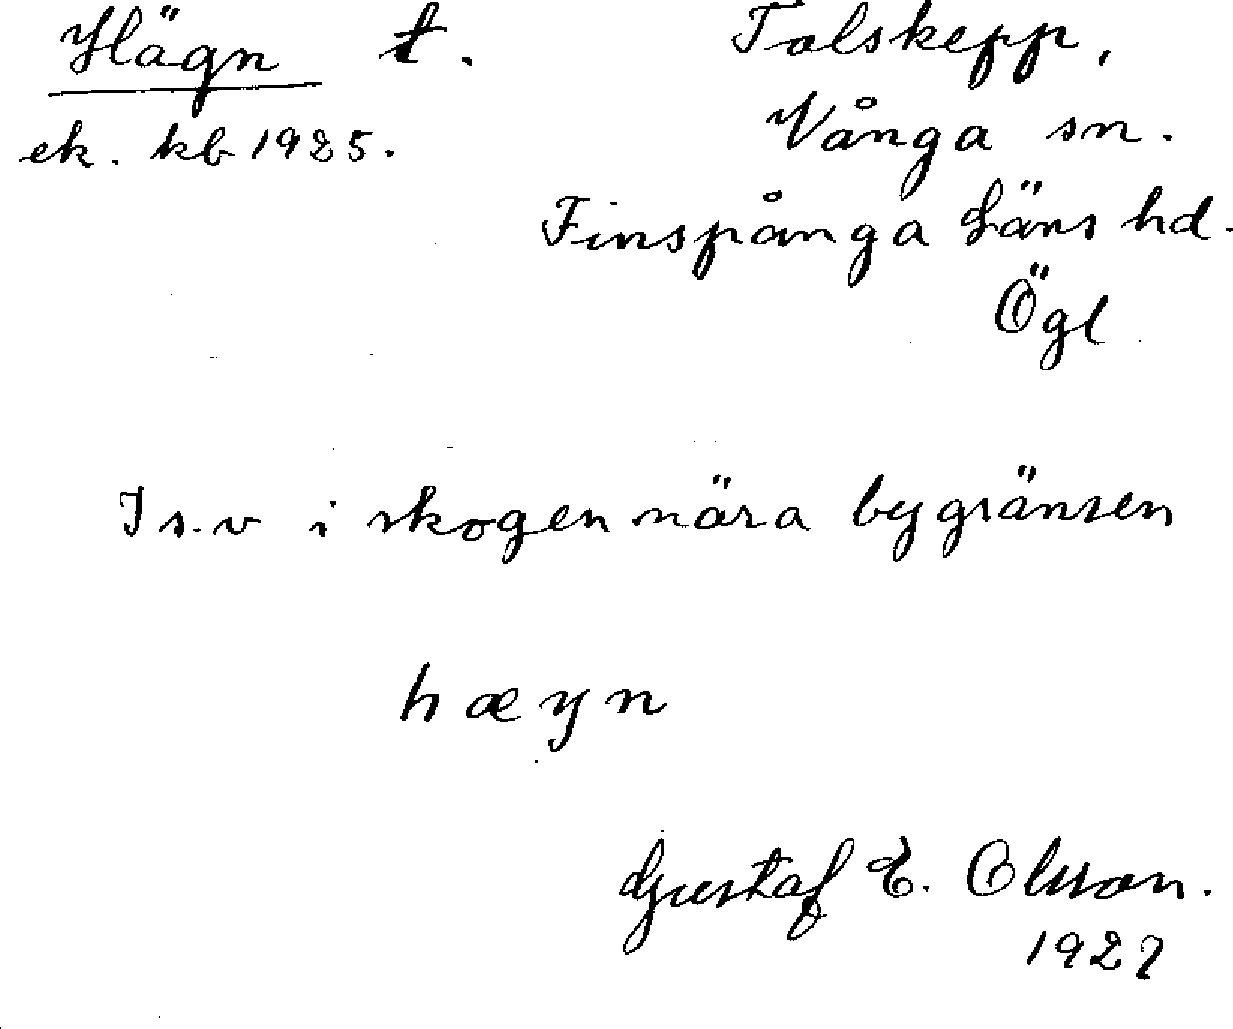 Hägn t.
Tolskepp,
ek. kb 1925.
Vånga sn.
Finspånga läns hd.
Ögl
I s.v i skogen nära bygränsen
hæyn
Gustaf E. Olsson.
1927